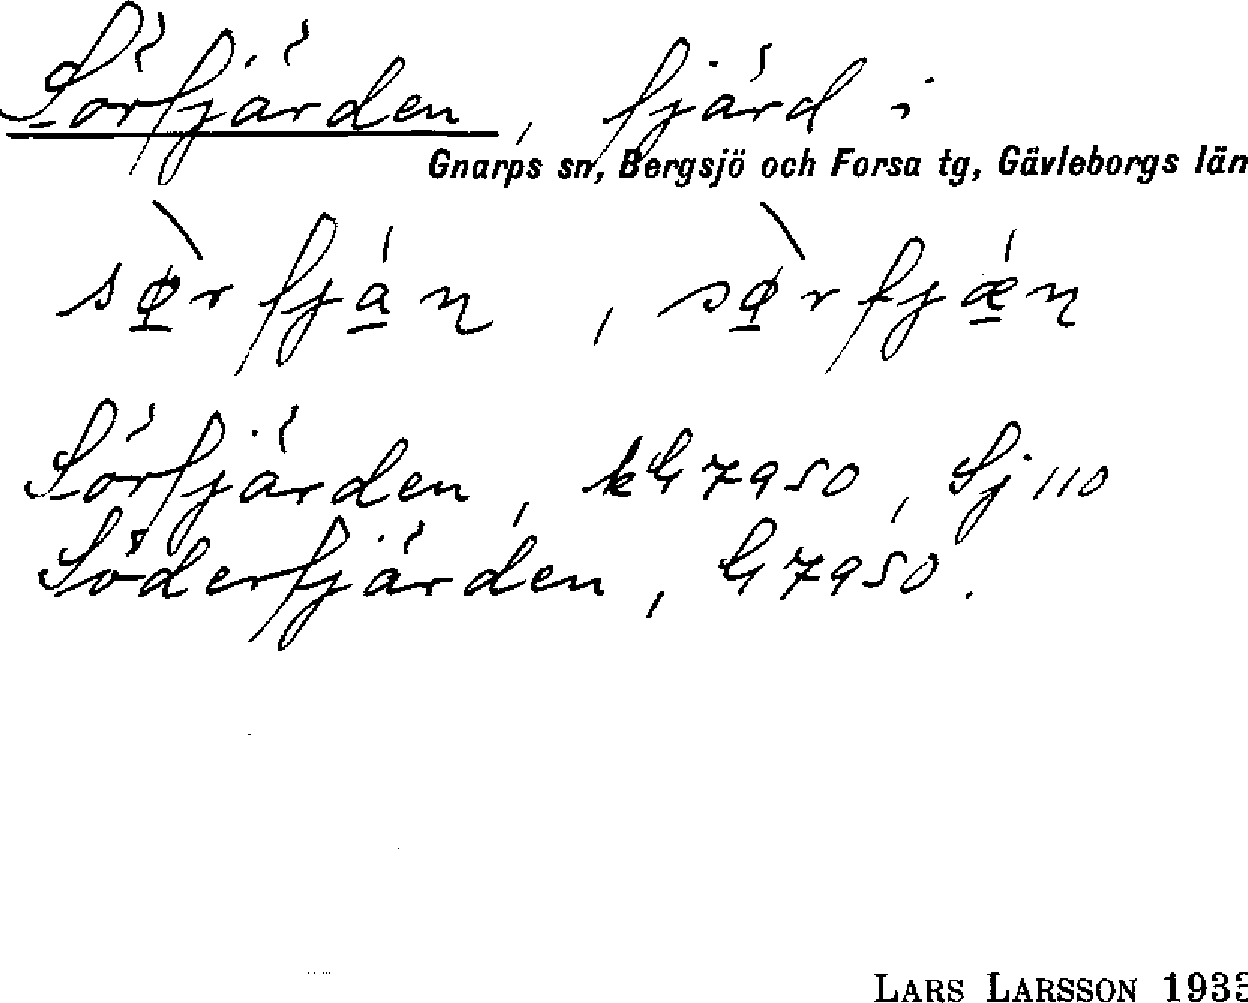 Sörfjärden, fjärd i
Gnarps sn, Bergsjö och Forsa tg, Gävleborgs län
sø̠̀rfjá̠n, sø̠̀rfjǽ̠n
Sörfjärden, kG 7950, Sj 110
Söderfjärden, G 7950.
LARS LARSSON 193